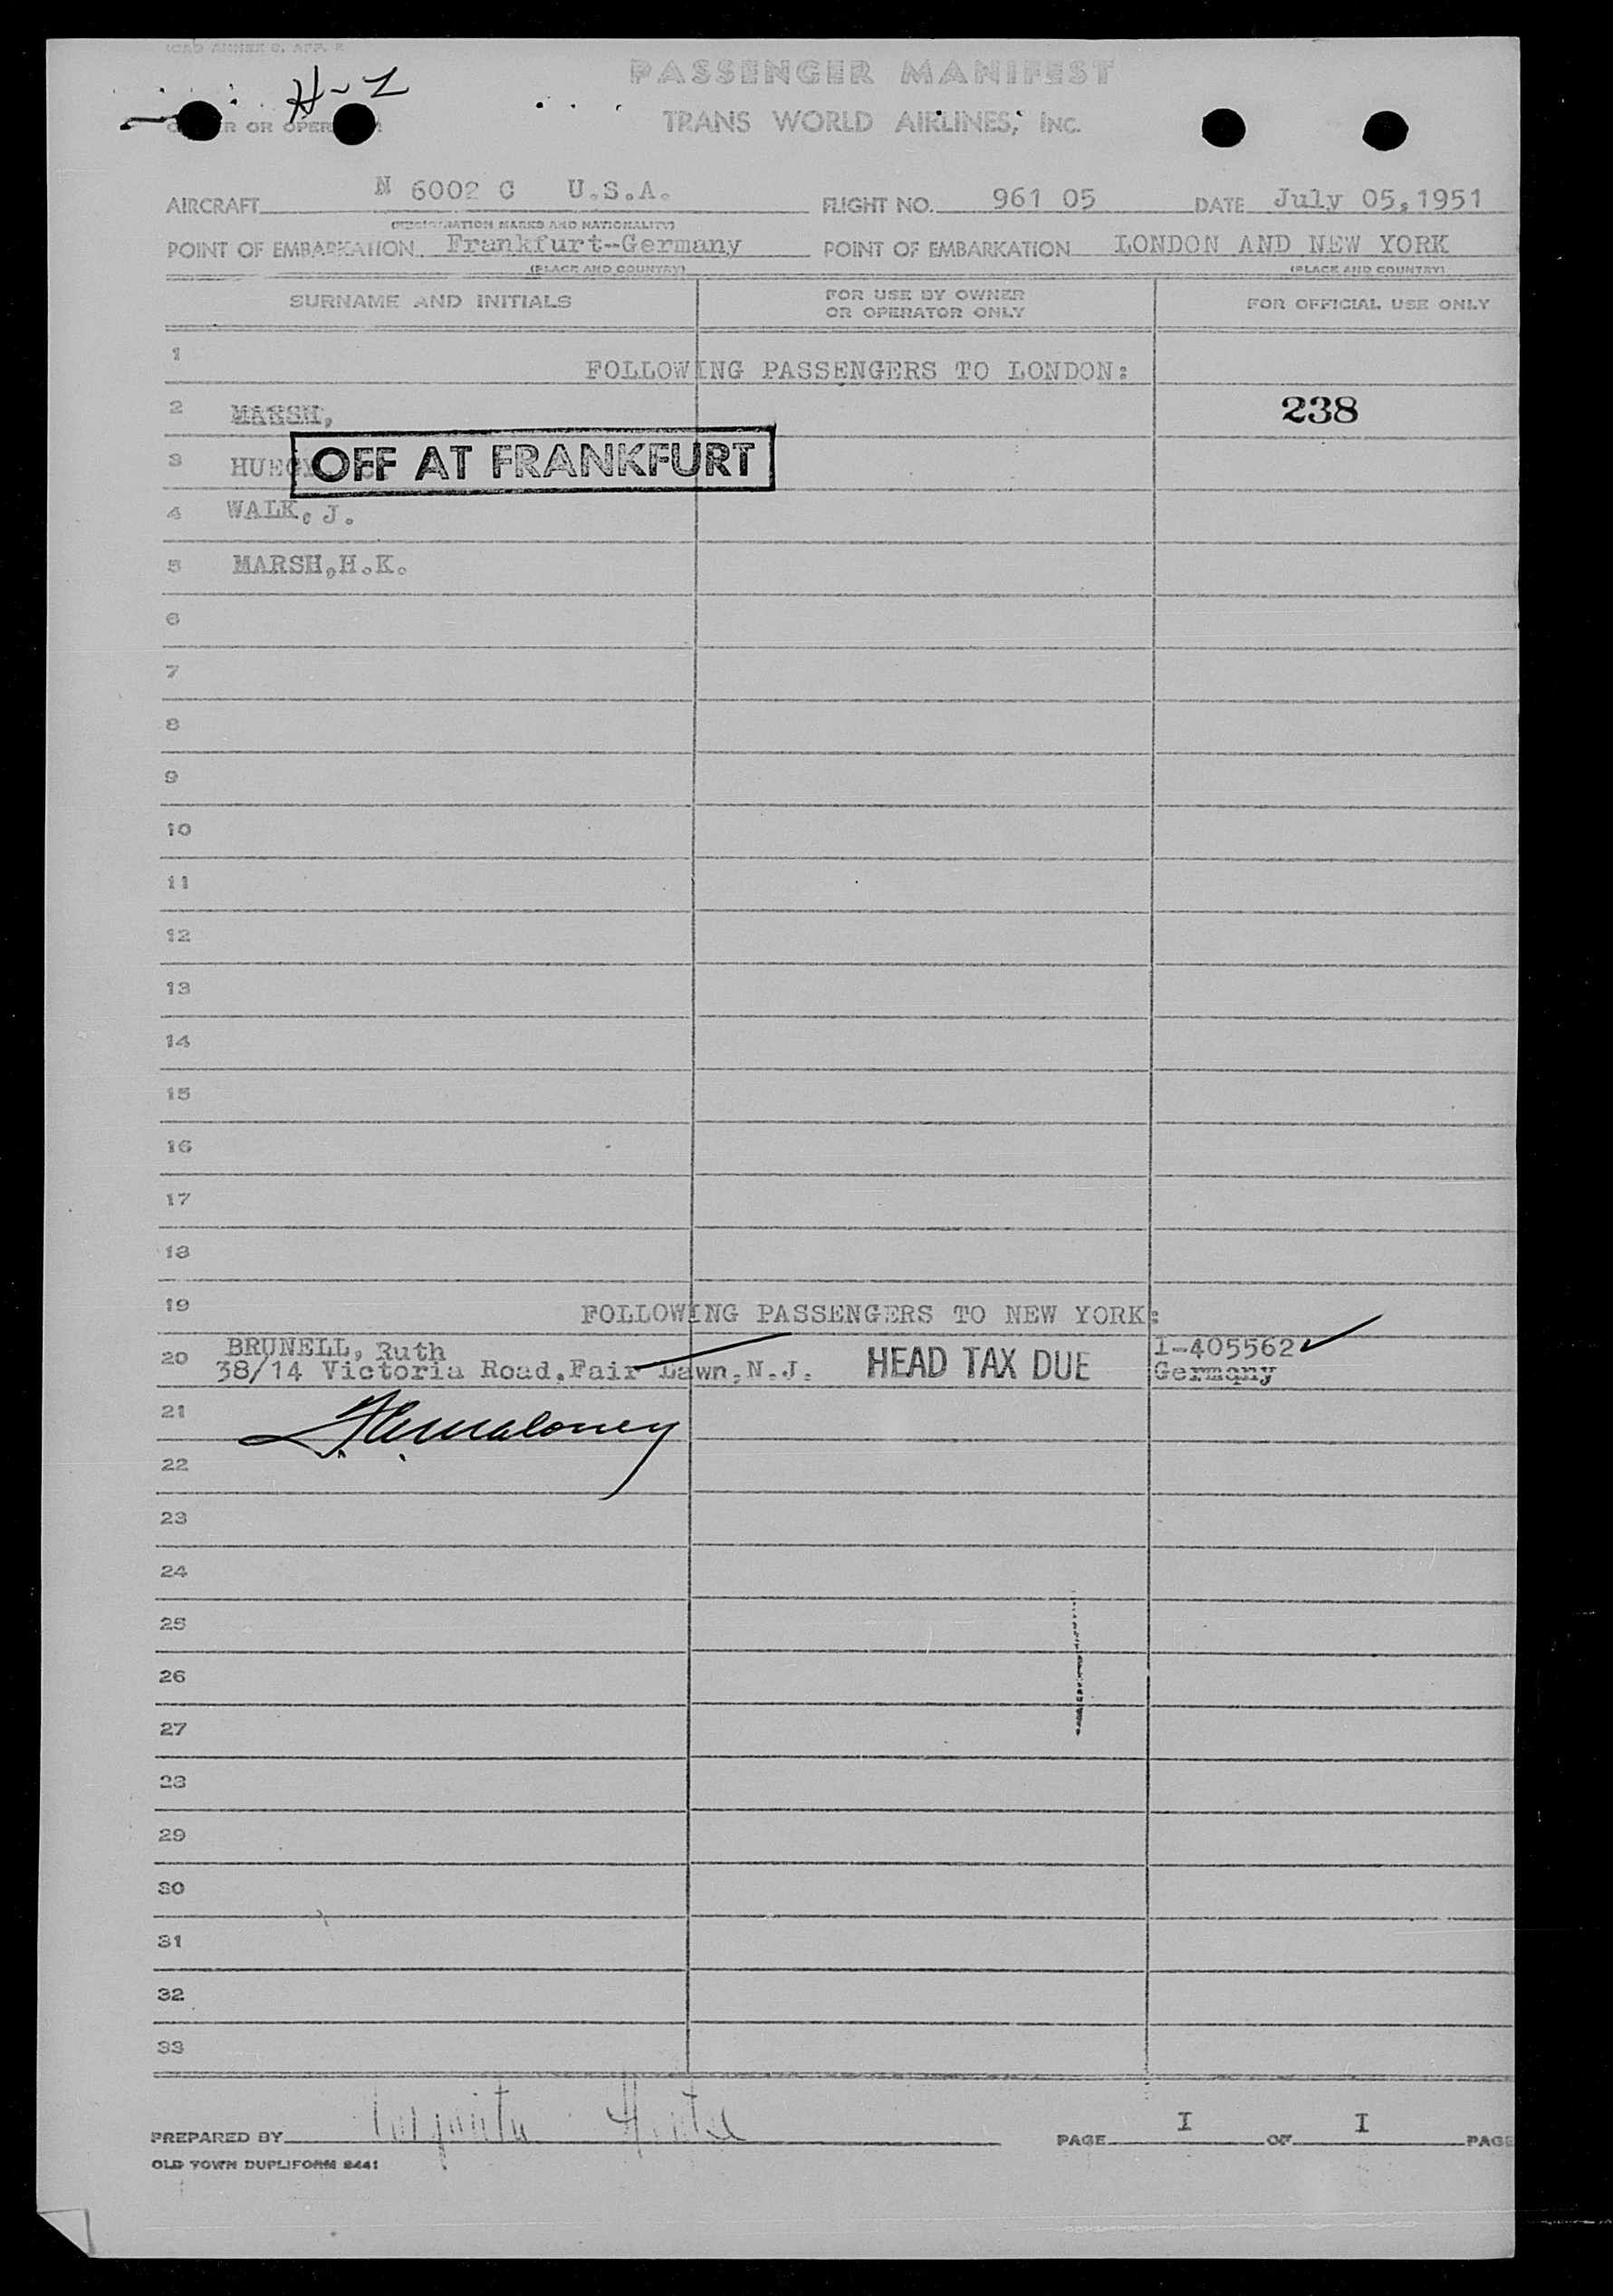 ICAO ANNEX 9, APP. 2
H-Z
PASSENGER MANIFEST
OR OPERATOR
TRANS WORLD AIRLINES, INC.
AIRCRAFT N 6002 C U.S.A. FLIGHT NO. 961 05 DATE July 05,1951
(REGISTRATION MARKS AND NATIONALITY)
POINT OF EMBARKATION Frankfurt-Germany POINT OF EMBARKATION LONDON AND NEW YORK
(PLACE AND COUNTRY) (PLACE AND COUNTRY)
SURNAME AND INITIALS FOR USE BY OWNER OR OPERATOR ONLY FOR OFFICIAL USE ONLY
1 FOLLOWING PASSENGERS TO LONDON:
2 MARSH, 238
3 OFF AT FRANKFURT
4 WALK, J.
5 MARSH,H.K.
6
7
8
9
10
11
12
13
14
15
16
17
18
19 FOLLOWING PASSENGERS TO NEW YORK:
20 BRUNELL, Ruth I-405562
38/14 Victoria Road,Fair Lawn,N.J. HEAD TAX DUE Germany
21
22
23
24
25
26
27
28
29
30
31
32
33
PREPARED BY PAGE I OF I PAGE
OLD TOWN DUPLIFORM 8441